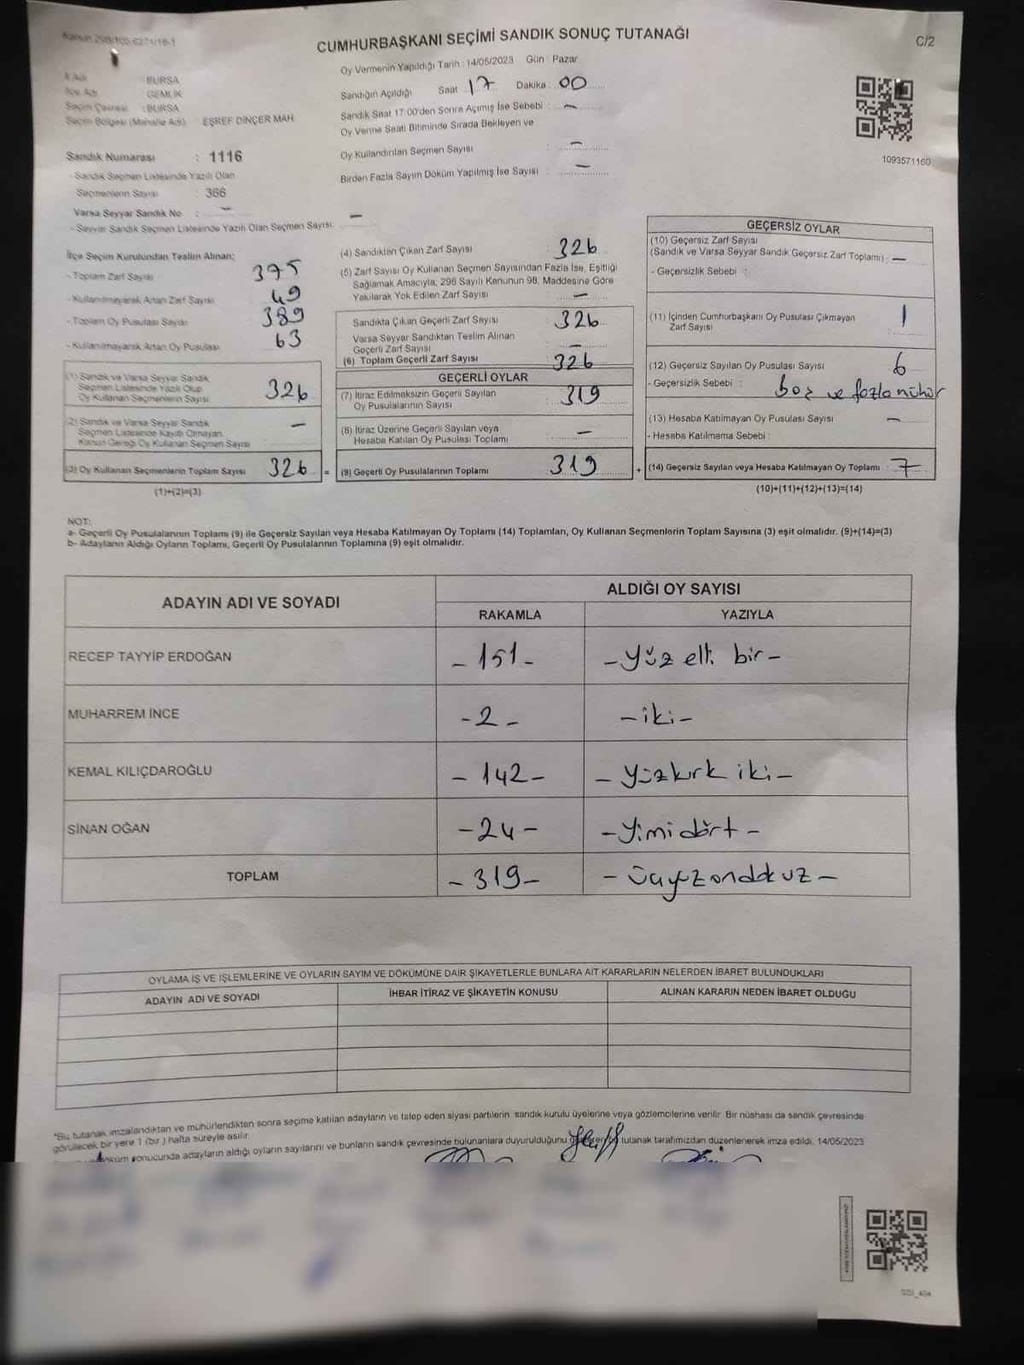 CUMHURBAŞKANI SEÇİMİ SANDIK SONUÇ TUTANAĞI
C/2
Oy Vermenin Yapıldığı Tarih : 14/05/2023 Gün : Pazar
İl Adı : BURSA
İlçe Adı : GEMLİK
Seçim Çevresi : BURSA
Seçim Bölgesi (Mahalle Adı) EŞREF DİNÇER MAH
Sandığın Açıldığı Saat 17 Dakika 00
Sandık Saat 17:00'den Sonra Açımış İse Sebebi : -
Oy Verme Saati Bitiminde Sırada Bekleyen ve
Oy Kullandırılan Seçmen Sayısı : -
Birden Fazla Sayım Döküm Yapılmış İse Sayısı : -
1093571160
Sandık Numarası : 1116
- Sandık Seçmen Listesinde Yazılı Olan
Seçmenlerin Sayısı : 366
Varsa Seyyar Sandık No : -
- Seyyar Sandık Seçmen Listesinde Yazılı Olan Seçmen Sayısı: -
İlçe Seçim Kurulundan Teslim Alınan;
- Toplam Zarf Sayısı 375
- Kullanılmayarak Artan Zarf Sayısı 49
- Toplam Oy Pusulası Sayısı 389
- Kullanılmayarak Artan Oy Pusulası 63
(1) Sandık ve Varsa Seyyar Sandık
Seçmen Listesinde Yazılı Olup
Oy Kullanan Seçmenlerin Sayısı 326
(2) Sandık ve Varsa Seyyar Sandık
Seçmen Listesinde Kayıtlı Olmayan
Kanun Gereği Oy Kullanan Seçmen Sayısı -
(3) Oy Kullanan Seçmenlerin Toplam Sayısı 326 =
(1)+(2)=(3)
(4) Sandıktan Çıkan Zarf Sayısı 326
(5) Zarf Sayısı Oy Kullanan Seçmen Sayısından Fazla İse, Eşitliği
Sağlamak Amacıyla, 298 Sayılı Kanunun 98. Maddesine Göre
Yakılarak Yok Edilen Zarf Sayısı -
Sandıkta Çıkan Geçerli Zarf Sayısı : 326
Varsa Seyyar Sandıktan Teslim Alınan
Geçerli Zarf Sayısı : -
(6) Toplam Geçerli Zarf Sayısı 326
GEÇERLİ OYLAR
(7) İtiraz Edilmeksizin Geçerli Sayılan
Oy Pusulalarının Sayısı : 319
(8) İtiraz Üzerine Geçerli Sayılan veya
Hesaba Katılan Oy Pusulası Toplamı : -
(9) Geçerli Oy Pusulalarının Toplamı 319 +
GEÇERSİZ OYLAR
(10) Geçersiz Zarf Sayısı
(Sandık ve Varsa Seyyar Sandık Geçersiz Zarf Toplamı) : -
- Geçersizlik Sebebi :
(11) İçinden Cumhurbaşkanı Oy Pusulası Çıkmayan
Zarf Sayısı : 1
(12) Geçersiz Sayılan Oy Pusulası Sayısı : 6
- Geçersizlik Sebebi : boş ve fazla mühür
(13) Hesaba Katılmayan Oy Pusulası Sayısı : -
- Hesaba Katılmama Sebebi :
(14) Geçersiz Sayılan veya Hesaba Katılmayan Oy Toplamı : 7
(10)+(11)+(12)+(13)=(14)
NOT:
a- Geçerli Oy Pusulalarının Toplamı (9) ile Geçersiz Sayılan veya Hesaba Katılmayan Oy Toplamı (14) Toplamları, Oy Kullanan Seçmenlerin Toplam Sayısına (3) eşit olmalıdır. (9)+(14)=(3)
b- Adayların Aldığı Oyların Toplamı, Geçerli Oy Pusulalarının Toplamına (9) eşit olmalıdır.
ADAYIN ADI VE SOYADI
ALDIĞI OY SAYISI
RAKAMLA YAZIYLA
RECEP TAYYİP ERDOĞAN -151- -Yüz elli bir-
MUHARREM İNCE -2- -iki-
KEMAL KILIÇDAROĞLU -142- -Yüzkırk iki-
SİNAN OĞAN -24- -Yimi dört-
TOPLAM -319-
OYLAMA İŞ VE İŞLEMLERİNE VE OYLARIN SAYIM VE DÖKÜMÜNE DAİR ŞİKAYETLERLE BUNLARA AİT KARARLARIN NELERDEN İBARET BULUNDUKLARI
ADAYIN ADI VE SOYADI İHBAR İTİRAZ VE ŞİKAYETİN KONUSU ALINAN KARARIN NEDEN İBARET OLDUĞU
*Bu tutanak imzalandıktan ve mühürlendikten sonra seçime katılan adayların ve talep eden siyasi partilerin, sandık kurulu üyelerine veya gözlemcilerine verilir. Bir nüshası da sandık çevresinde
görülecek bir yere 1 (bir ) hafta süreyle asılır.
döküm sonucunda adayların aldığı oyların sayılarını ve bunların sandık çevresinde bulunanlara duyurulduğunu tutanak tarafımızdan düzenlenerek imza edildi. 14/05/2023